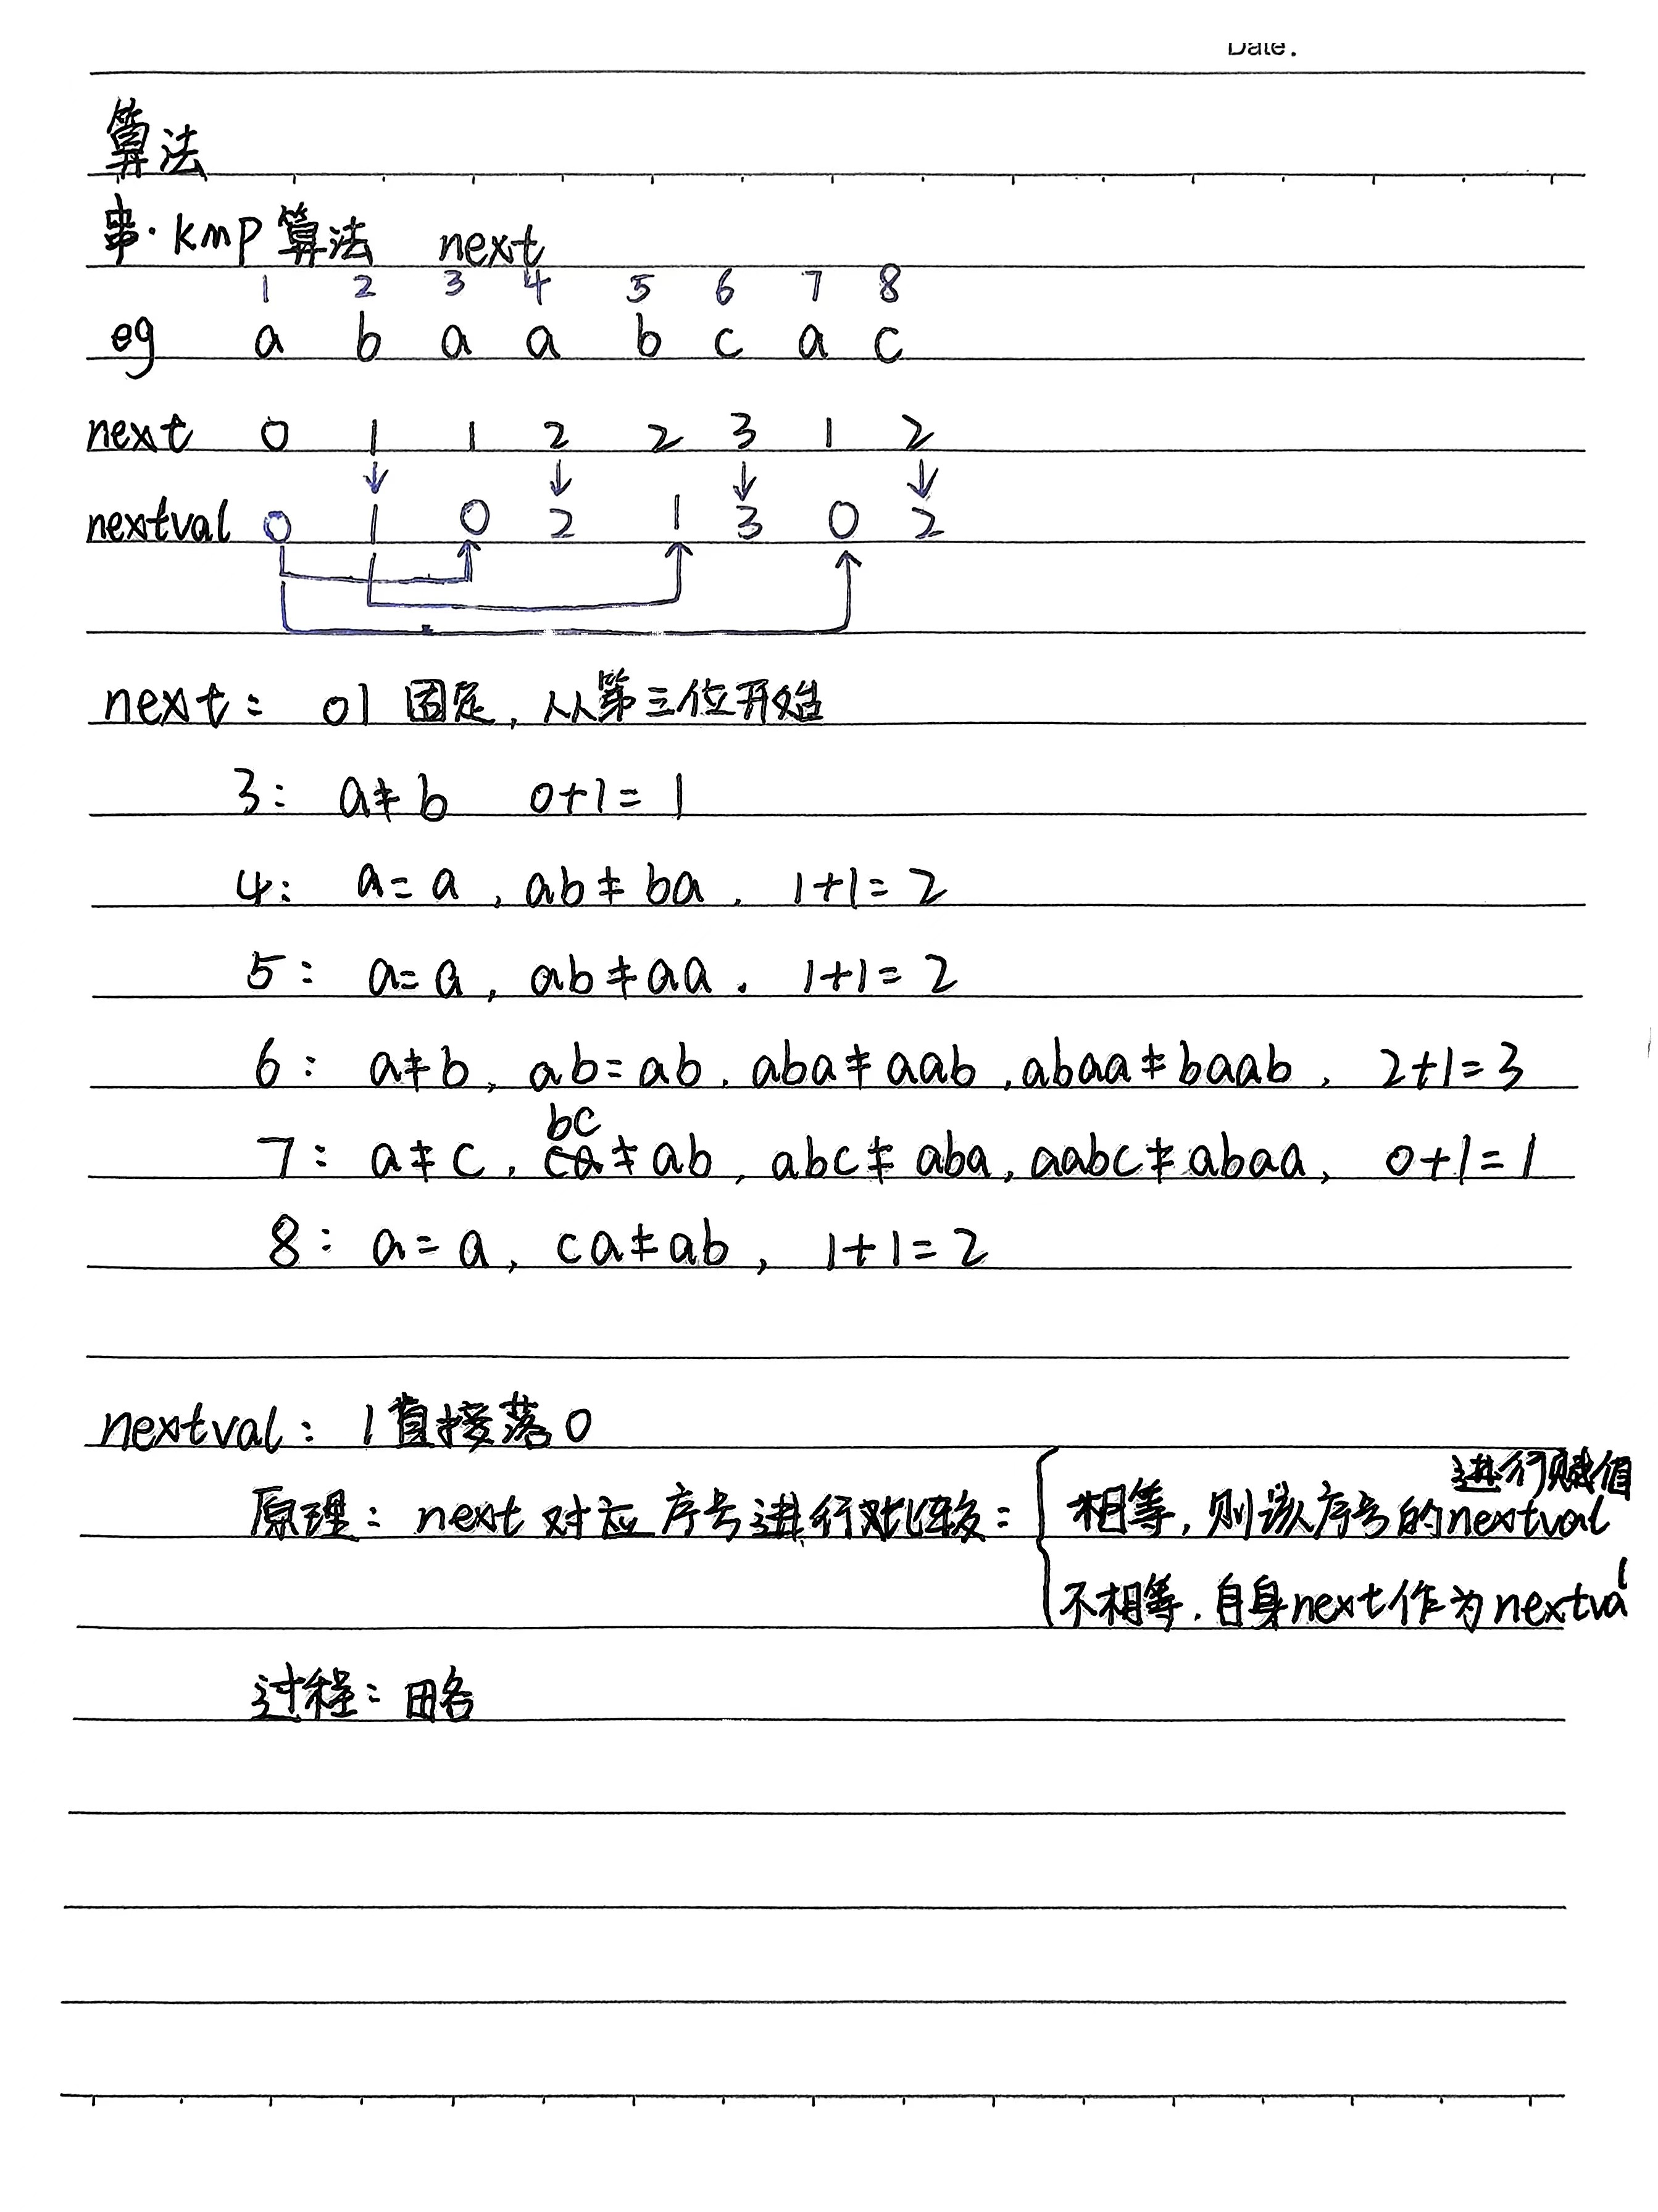 Date.
算法
串·kmp算法 next
1 2 3 4 5 6 7 8
eg a b a a b c a c
next 0 1 1 2 2 3 1 2
nextval 0 1 0 2 1 3 0 2
next: 01 固定, 从第三位开始
3: a≠b 0+1=1
4: a=a, ab≠ba. 1+1=2
5: a=a, ab≠aa. 1+1=2
6: a≠b, ab=ab, aba≠aab, abaa≠baab, 2+1=3
bc
7: a≠c, ca≠ab, abc≠aba, aabc≠abaa, 0+1=1
8: a=a, ca≠ab, 1+1=2
nextval: 1直接落0
进行赋值
原理: next对应序号进行对比较: 相等, 则该序号的nextval
不相等, 自身next作为nextval
过程: 略